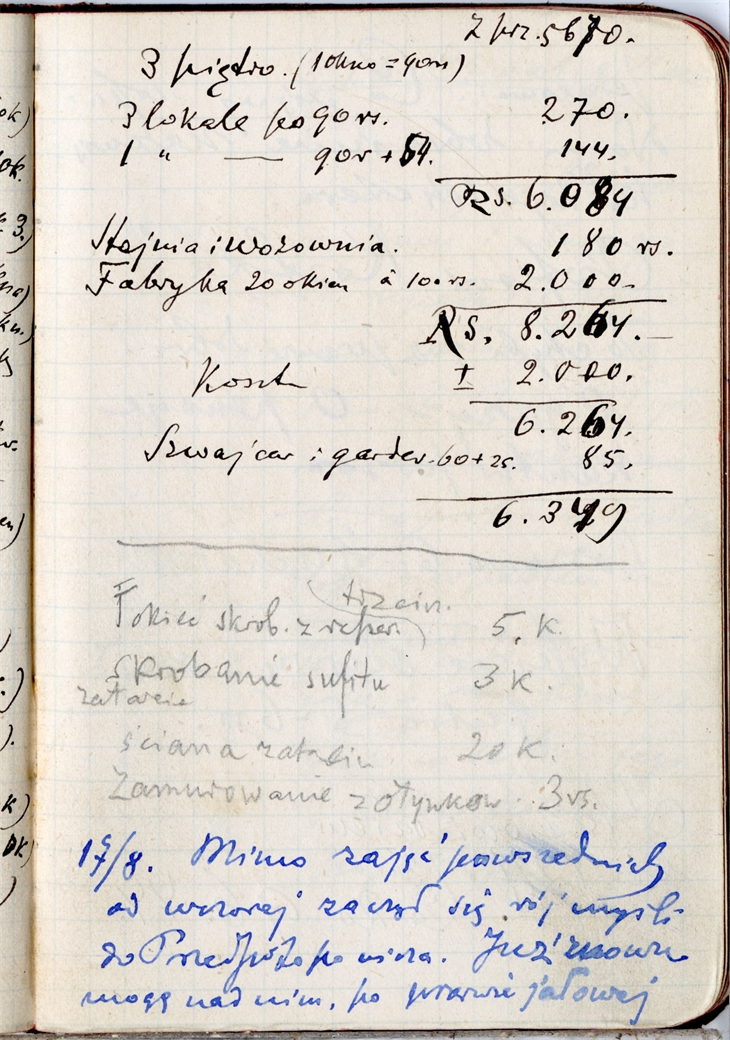 Z prz. 5670.
3 piętro. (1 okno = 90rs)
3 lokale po 90 rs. 270.
1 " — 90r + 54. 144.
Rs. 6.084
Stajnia i wozownia. 180 rs.
Fabryka 20 okien à 100 rs. 2.000.
Rs. 8.264.
Koszta ± 2.000.
6.264.
Szwajcar i garder. 60 + 25. 85.
6.349
trzcin.
Łokieć skrob. z reper. 5. K.
Skrobanie sufitu 3 K.
zatarcie
ściana zatarcie 20 K.
Zamurowanie z otynkow. 3 rs.
17/8. Mimo zajęć powszednich
od wczoraj zaczął się rój myśli
do Przedpotopowicza. Już znowu
mogę nad nim, po prawie jałowej